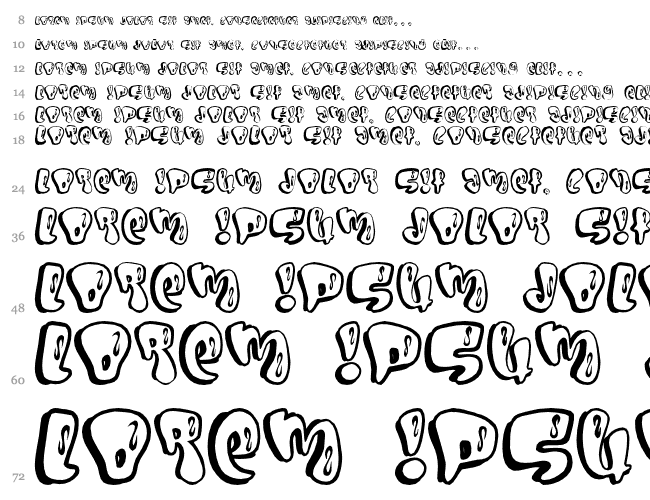 8 Lorem ipsum dolor sit amet, consectetuer adipiscing elit...
10 Lorem ipsum dolor sit amet, consectetuer adipiscing elit...
12 Lorem ipsum dolor sit amet, consectetuer adipiscing elit...
14 Lorem ipsum dolor sit amet, consectetuer adipiscing eli
16 Lorem ipsum dolor sit amet, consectetuer adipiscin
18 Lorem ipsum dolor sit amet, consectetuer adi
24 Lorem ipsum dolor sit amet, cons
36 Lorem ipsum dolor sit
48 Lorem ipsum dol
60 Lorem ipsum
72 Lorem ipsu